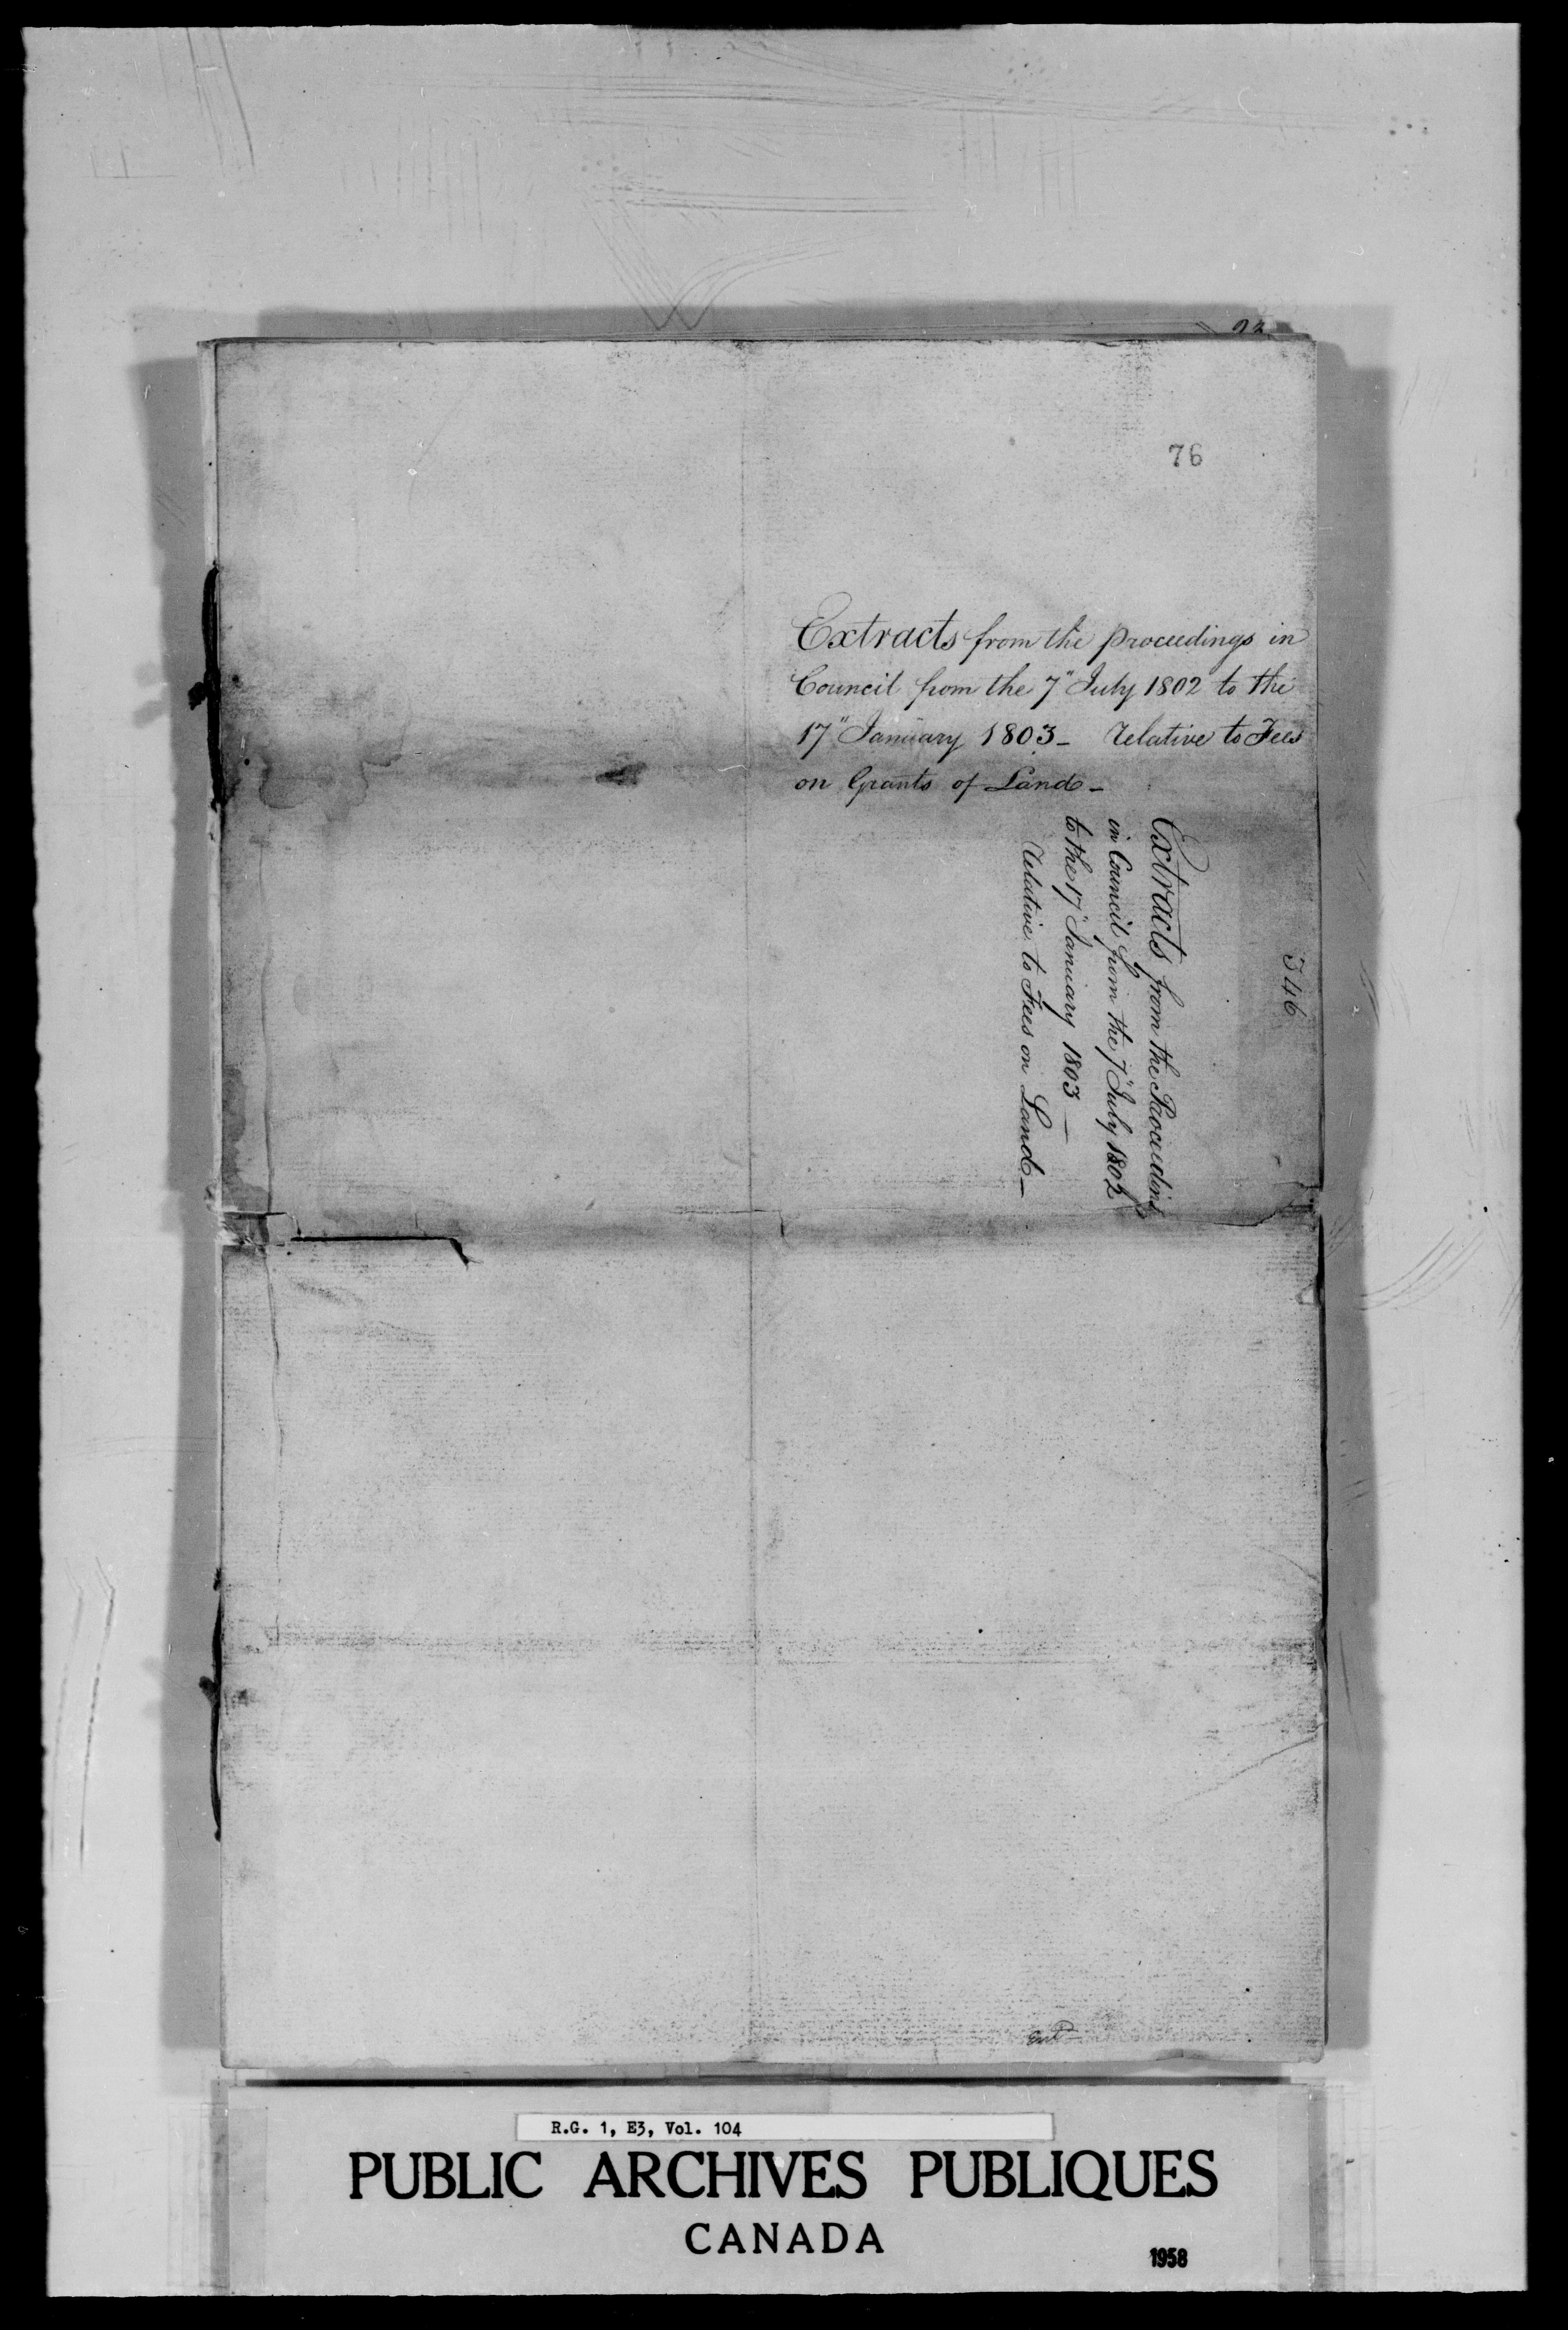 76
Extracts from the proceedings in
Council from the 7" July 1802 to the
17" January 1803 - Relative to Fees
on Grants of Land -
Extracts from the Proceedings
in Council from the 7" July 1802
to the 17" January 1803 —
Relative to Fees on Land —
346
R.G. 1, E3, Vol. 104
PUBLIC ARCHIVES PUBLIQUES
CANADA
1958